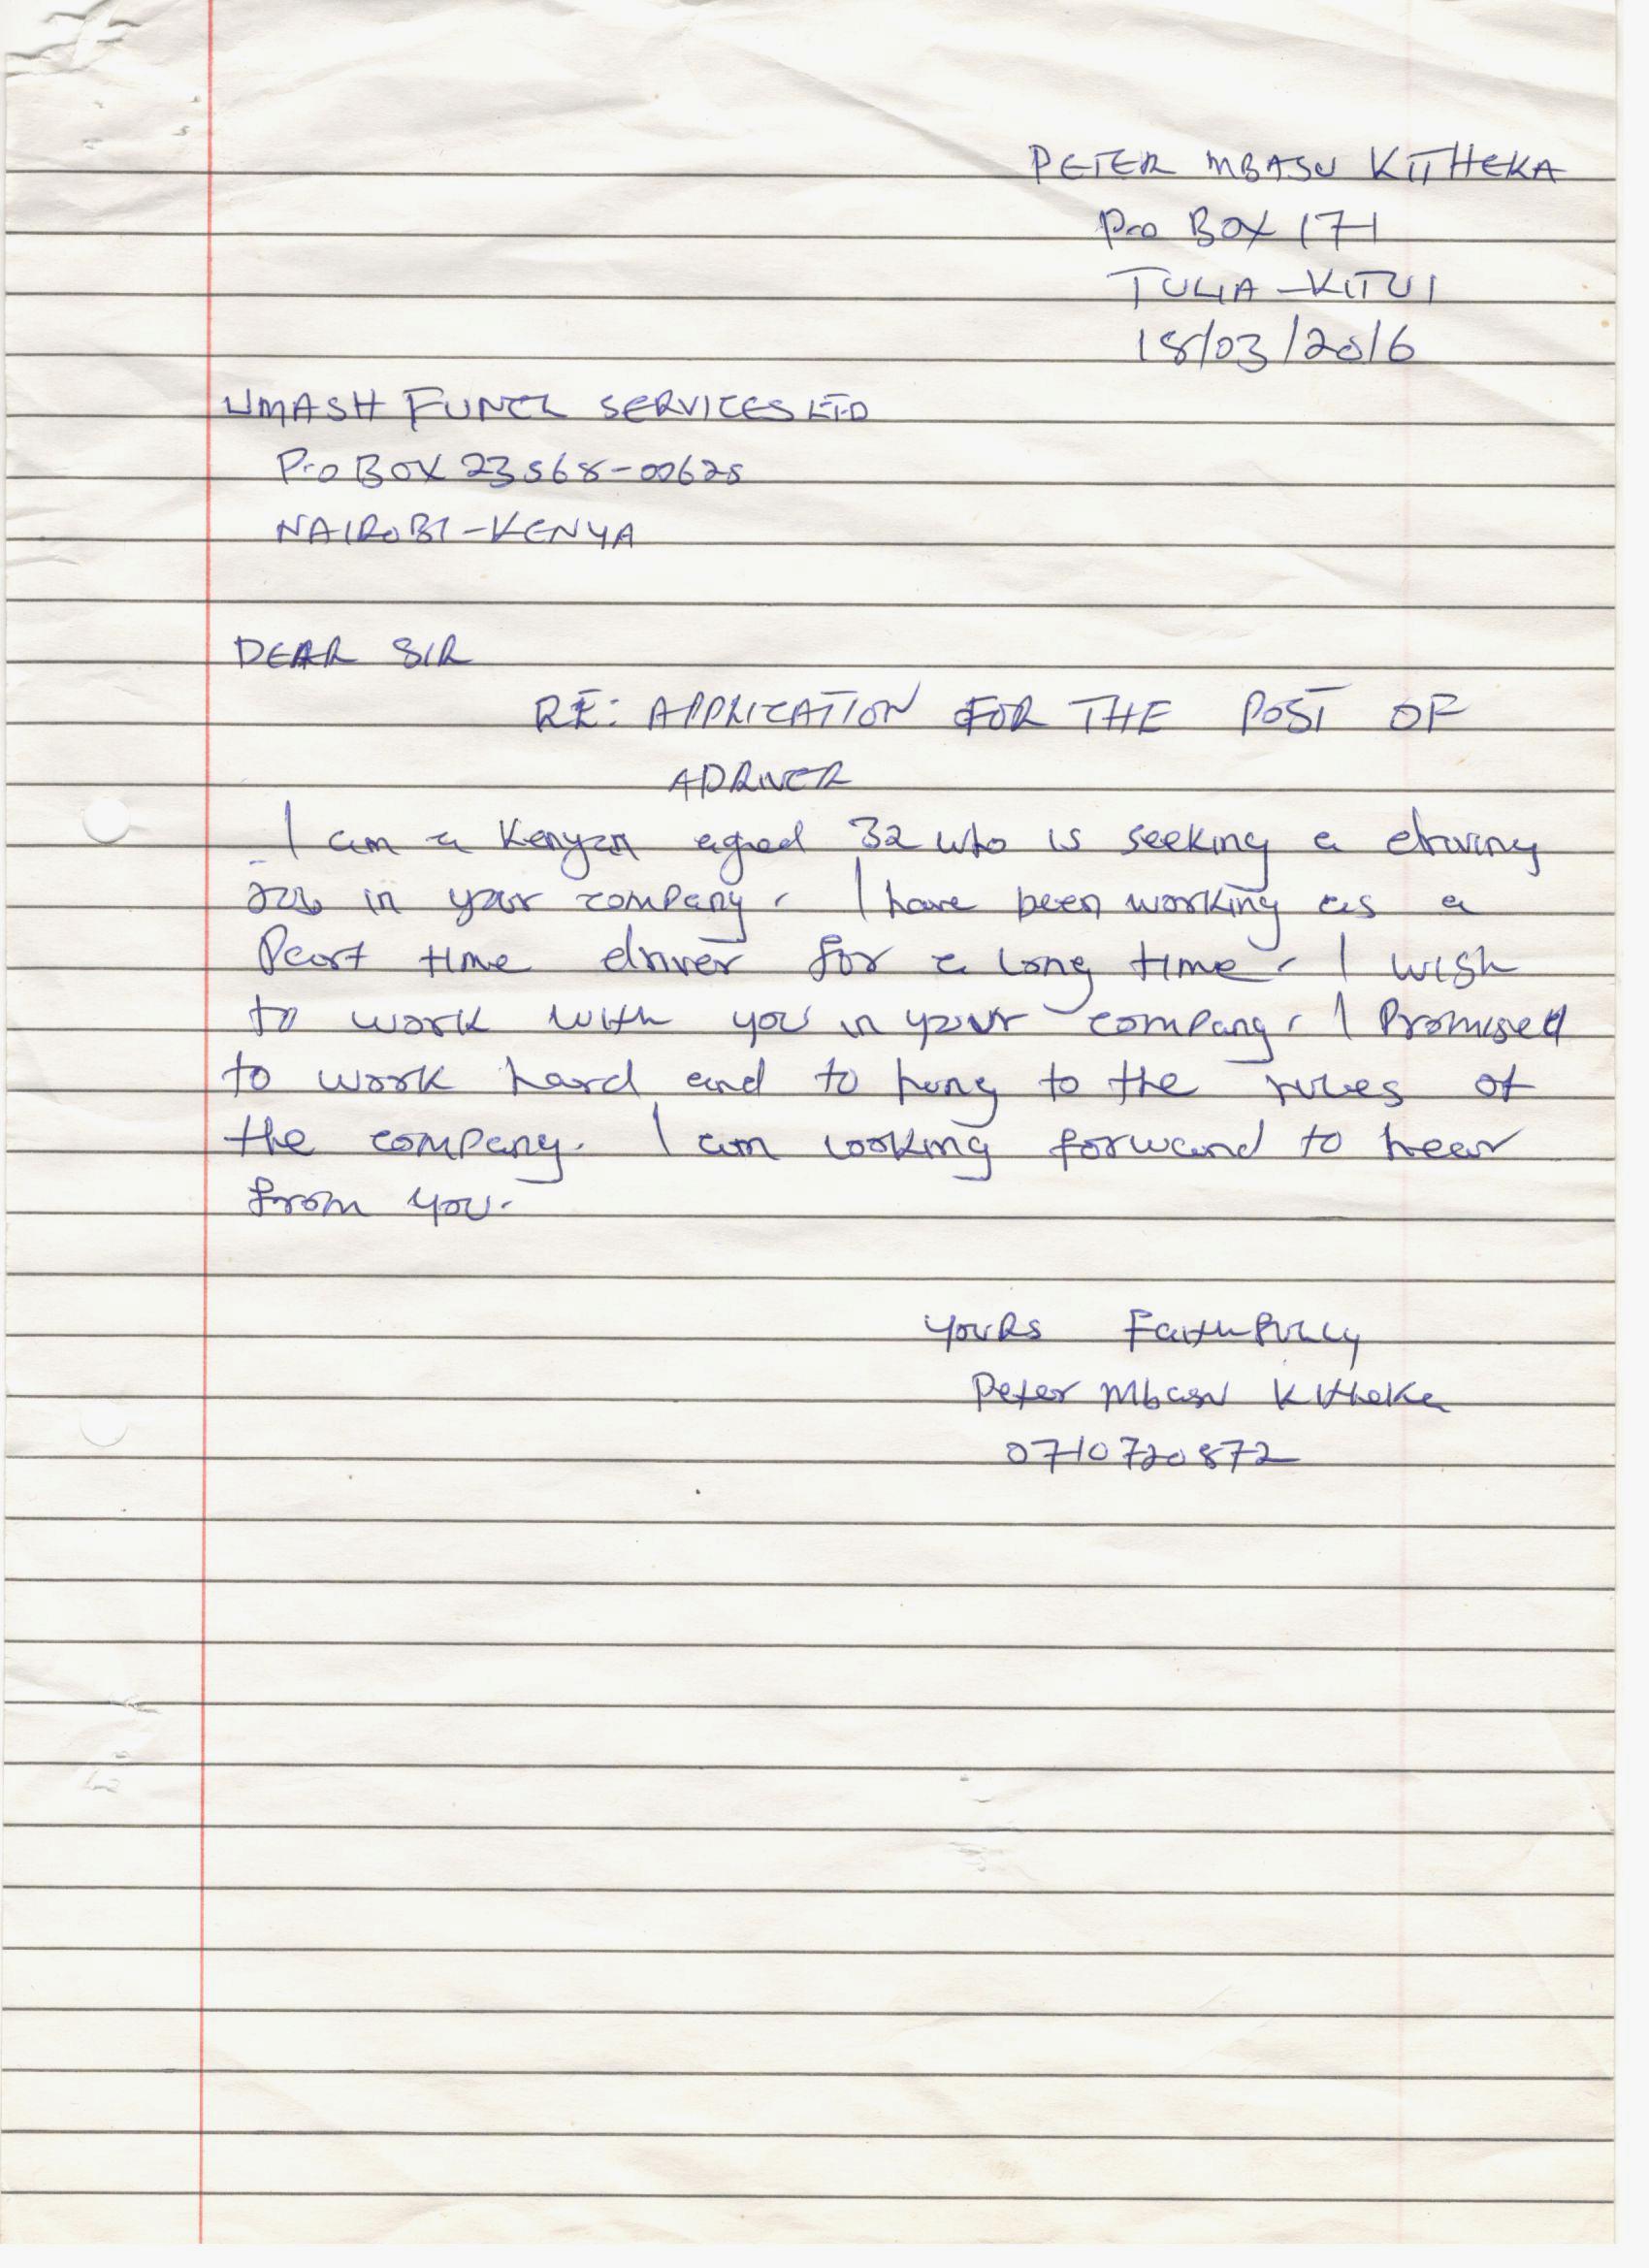 PETER MBASU KITHEKA
P.o BOX 171
TULIA-KITUI
18/03/2016
UMASH FUNEL SERVICES LTD
P.o BOX 23568-00625
NAIROBI-KENYA
DEAR SIR
RE: APPLICATION FOR THE POST OF
A DRIVER
I am a Kenyan aged 32 who is seeking a driving
job in your company. I have been working as a
Part time driver for a long time. I wish
to work with you in your company. I Promised
to work hard and to hung to the rules of
the company. I am looking forward to hear
from you.
YOURS Faithfully
Peter Mbasu Kitheka
0710720872